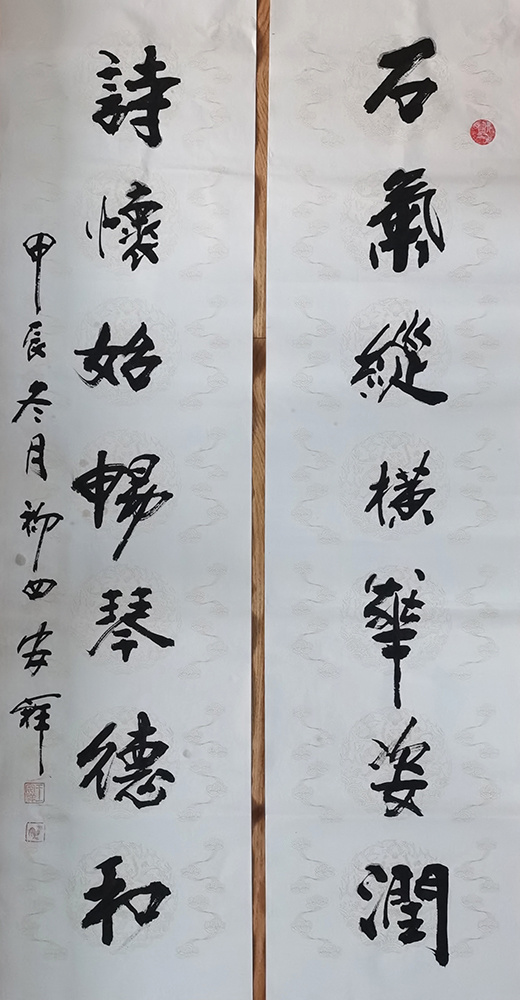 石氣縱橫華姿潤
詩懷始暢琴德和
甲辰冬月初四安祥